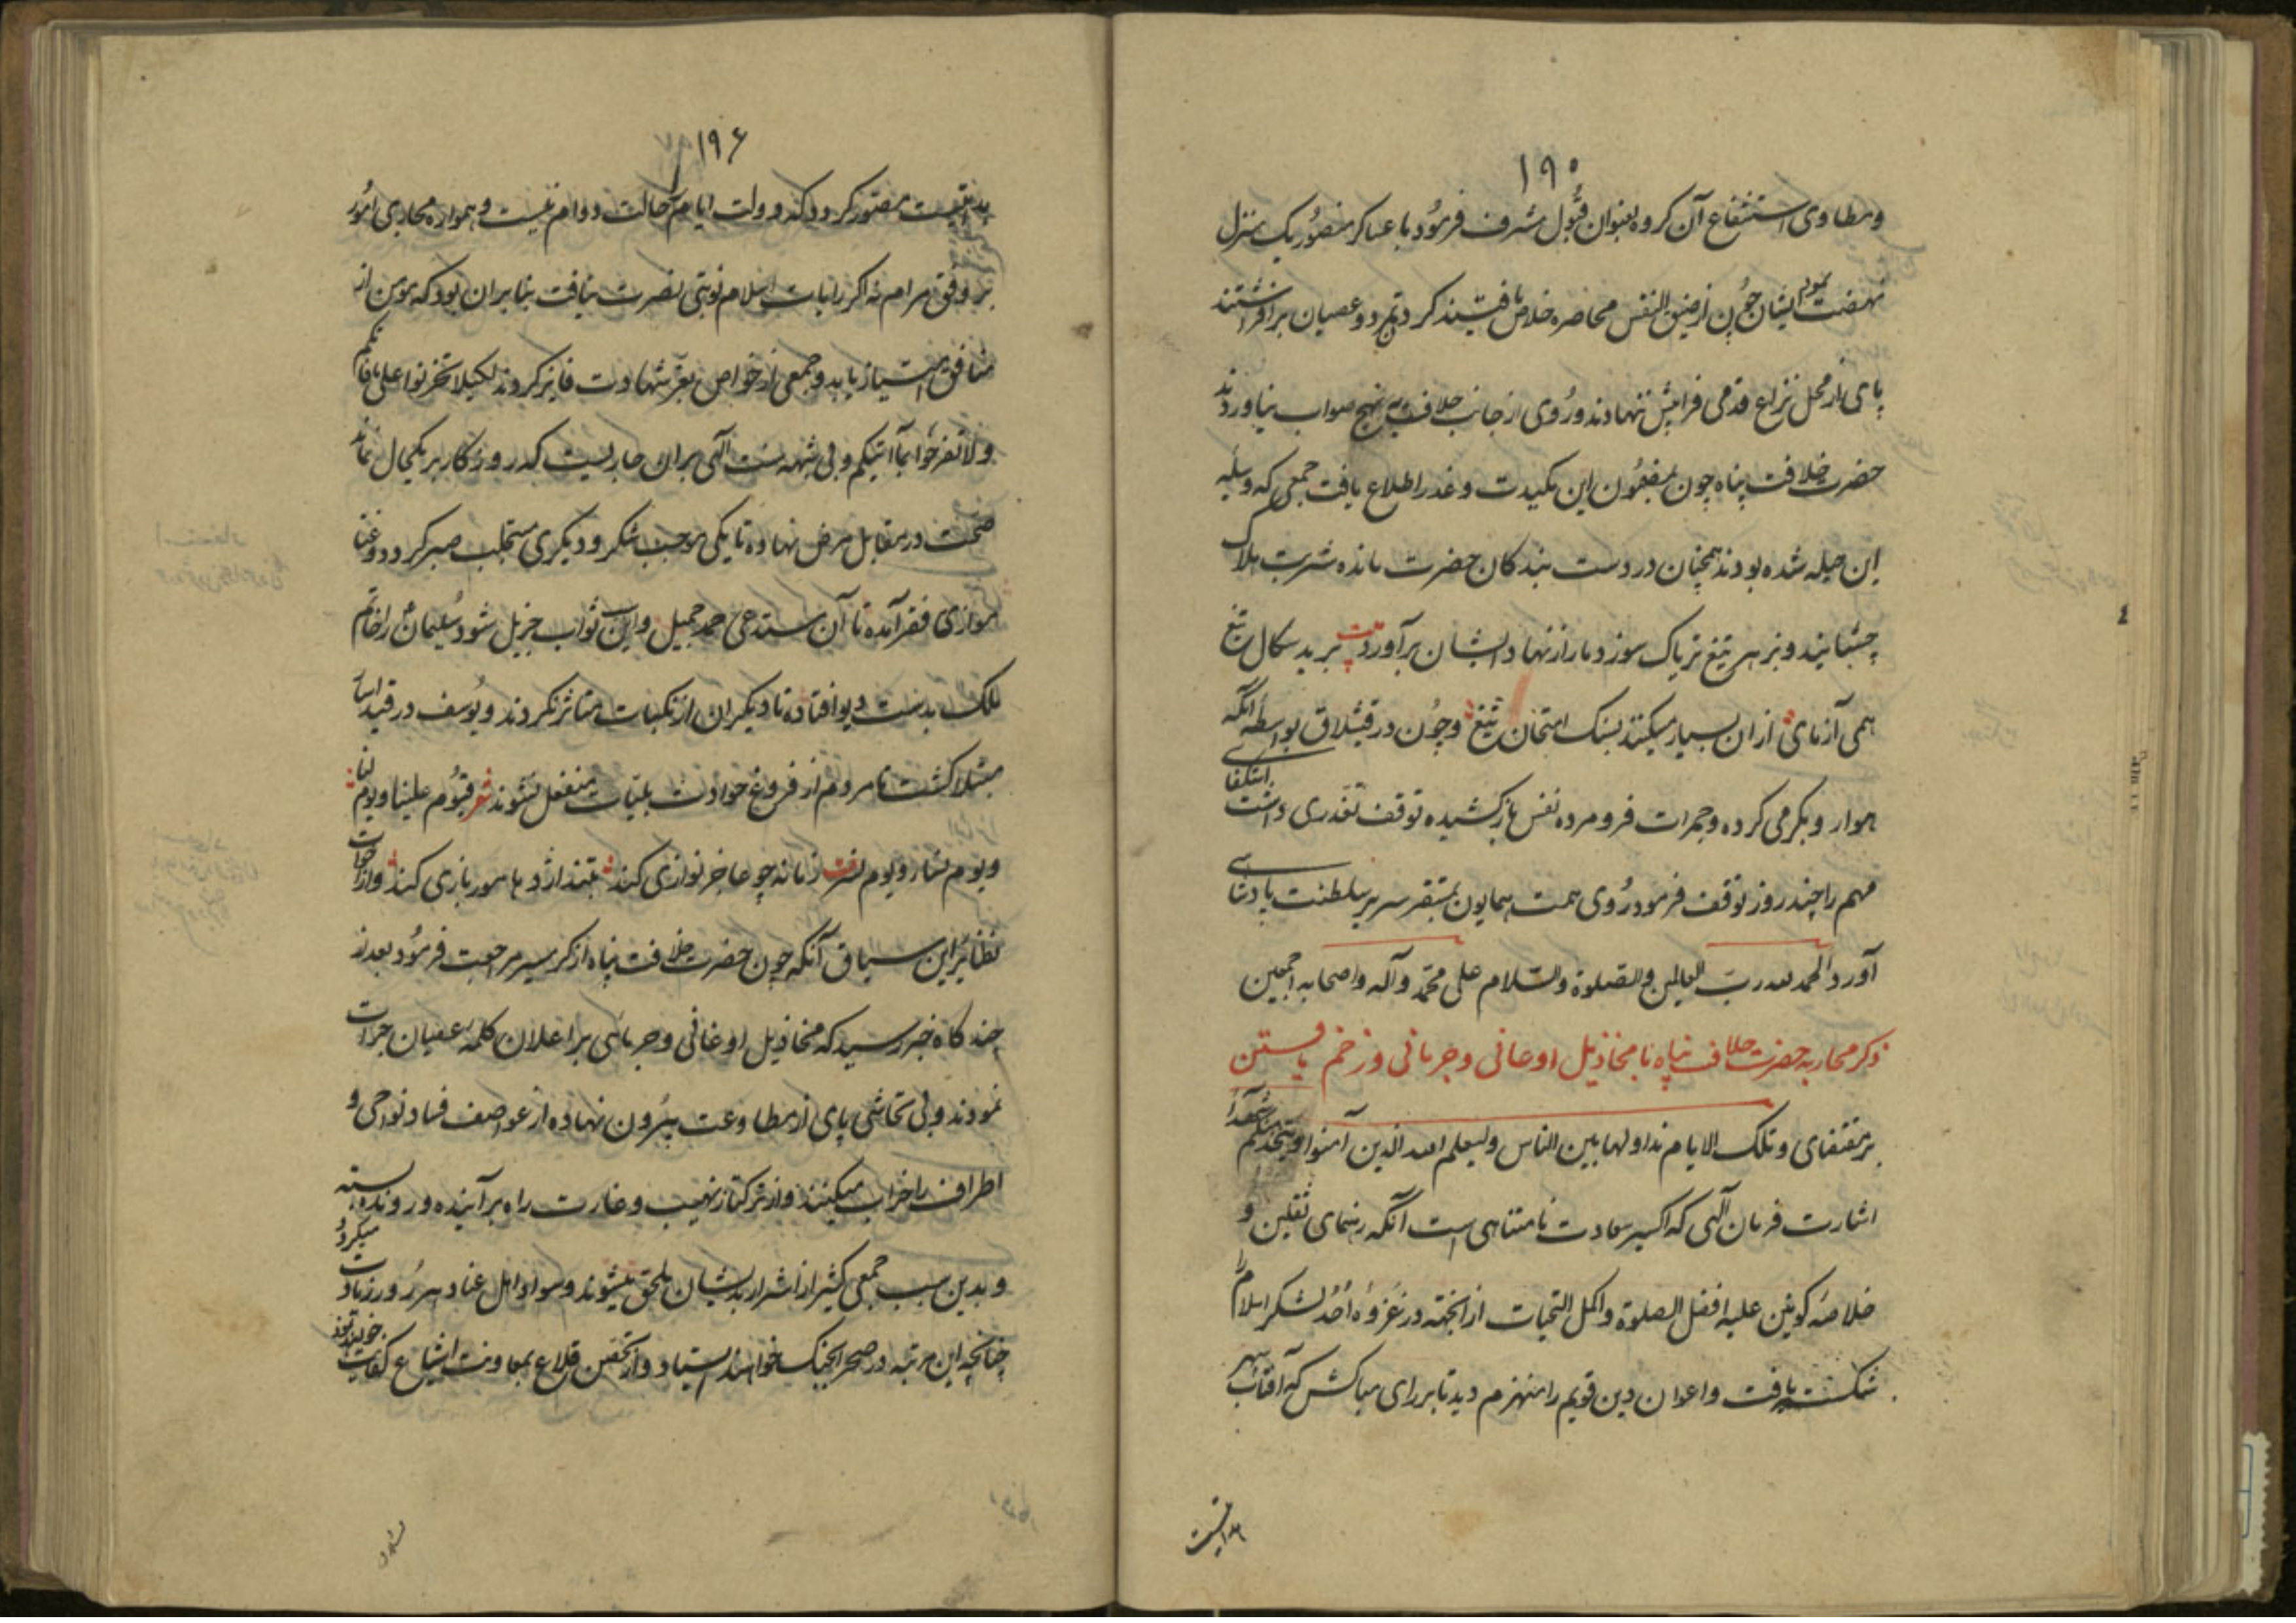 ۱۹۵
ومطاوی استشفاع آن کروه بعنوان قبول مشرف فرمود با عساکر منصور یک منزل
نهضت نمود ایشان چون از ضیق النفس محاصره خلاص یافتند کرد تمرد وعصیان برافراشتند
پای از محل نزاع قدمی فراپیش ننهادند وروی از جانب خلاف به نهج صواب نیاوردند
حضرت خلافت پناه چون بمضمون این مکیدت وغدر اطلاع یافت جمعی که وسیله
این حیله شده بودند همچنان در دست بندکان حضرت مانده شربت هلاک
چشانیدند وبزهر تیغ تریاک سوز دمار از نهاد ایشان برآورد بیت برید سکال تیغ
همی آزمای از ان بسیار میکنند بسنک امتحان تیغ وچون در قشلاق بواسطه آنکه
هوار وبکرمی کرده وجمرات فرو مرده نفس باز کشیده توقف تعذری داشت استکفای
مهم را چند روز توقف فرمود روی همت همایون بمستقر سریر سلطنت پادشاهی
آورد الحمد لله رب العالمین والصلوة والسلام علی محمد وآله واصحابه اجمعین
ذکر محاربه حضرت خلافت پناه با مخاذیل اوغانی وجرمانی وزخم یافتن
بر مقتضای وتلک الایام نداولها بین الناس ولیعلم الله الذین آمنوا ویتخذ منکم شهدآء
اشارت فرمان آلهی که اکسیر سعادت نامتناهی است آنکه رهنمای ثقلین و
خلاصه کونین علیه افضل الصلوة واکمل التحیات از انجهته در غزوه احد لشکر اسلام را
شکست یافت واعوان دین قویم را منهزم دید تا بر رای مباکش که آفتاب سپهر
هدایتست
۱۹۶
هدایتست مصور کردد که دولت ایام را حالت دوام نیست وهمواره مجاری امور
بر وفق مرام نه اکر رایات اسلام نوبتی نصرت نیافت بنابران بود که مومن از
منافق امتیاز یابد وجمعی از خواص بعز شهادت فایز کردند لکیلا تحزنوا علی ما فاتکم
ولا تفرحوا بما آتیکم وبی شبهه سنت آلهی بران جاریست که روزکار بر یکحال نماند
صحت در مقابل مرض نهاده تا یکی موجب شکر ودیکری مستجلب صبر کردد وغنا
موازی فقر آمده تا آن مستدعی حمد جمیل واین سبب ثواب جزیل شود سلیمان را خاتم
ملک بدست دیو افتاده تا دیکران از نکبات متاثر نکردند ویوسف در قید اسار
مبتلا کشت تا مردم از فروغ حوادث بلیات منفعل نشوند شعر فیوم علینا ویوم لنا
ویوم نساء ویوم نسر بیت زمانه چو عاجز نوازی کند بتند اژدها مور بازی کند واز اخوات
نظائر این سیاق آنکه چون حضرت خلافت پناه از کرمسیر مراجعت فرمود بعد از
چند کاه خبر رسید که مخاذیل اوغانی وجرمانی بر اعلان کلمه عصیان جرأت
نمودند وبی تحاشی پای از مطاوعت بیرون نهاده از عواصف فساد نواحی و
اطراف را خراب میکنند واز ترکتاز نهیب وغارت راه بر آینده ورونده بسته
وبدین سبب جمعی کثیر از اشرار بدیشان ملحق میشوند وسواد اهل عناد هر روز زیادت میکردد
چنانچه این مرتبه در صحرا بجنک خواهند ایستاد واز تحصن قلاع بمعاونت اشیاع کفایت خواهند نمود